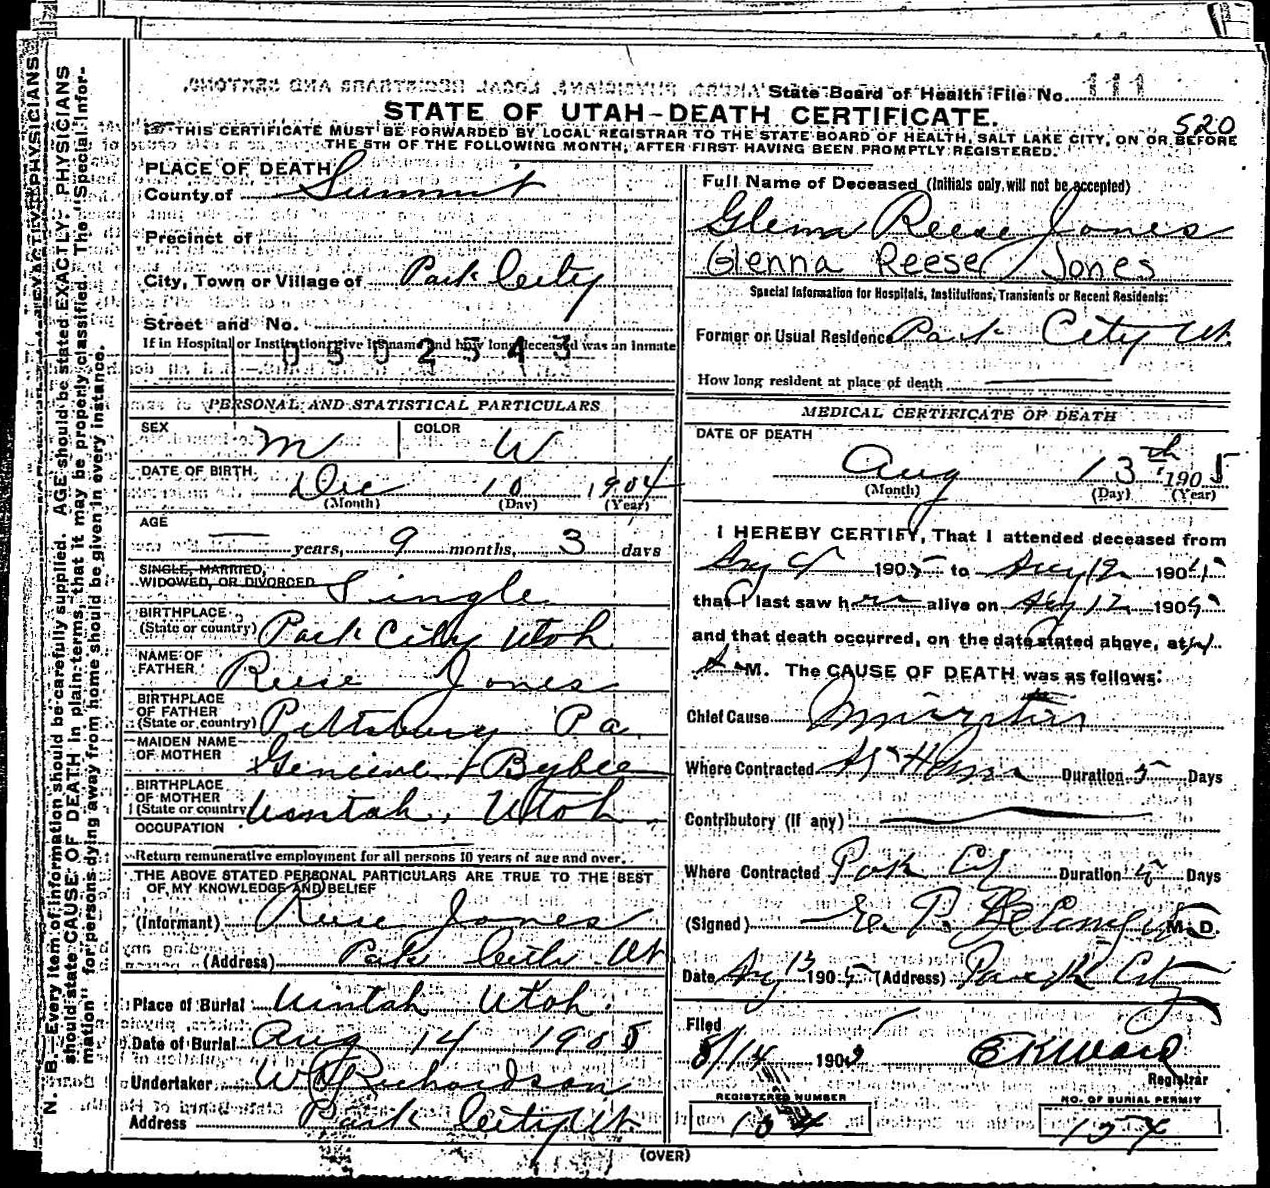 State Board of Health File No. 111
STATE OF UTAH—DEATH CERTIFICATE.
520
THIS CERTIFICATE MUST BE FORWARDED BY LOCAL REGISTRAR TO THE STATE BOARD OF HEALTH, SALT LAKE CITY, ON OR BEFORE
THE 5TH OF THE FOLLOWING MONTH, AFTER FIRST HAVING BEEN PROMPTLY REGISTERED.
N. B.—Every item of information should be carefully supplied. AGE should be stated EXACTLY. PHYSICIANS
should state CAUSE OF DEATH in plain terms, that it may be properly classified. The "Special Infor-
mation" for persons dying away from home should be given in every instance.
PLACE OF DEATH
County of Summit
Precinct of
City, Town or Village of Park City
Street and No.
If in Hospital or Institution, give its name and how long deceased was an inmate
0502543
PERSONAL AND STATISTICAL PARTICULARS
SEX M COLOR W
DATE OF BIRTH
Dec 10 1904
(Month) (Day) (Year)
AGE
— years, 9 months, 3 days
SINGLE, MARRIED,
WIDOWED, OR DIVORCED Single
BIRTHPLACE
(State or country) Park City Utah
NAME OF
FATHER Reese Jones
BIRTHPLACE
OF FATHER
(State or country) Pittsburg Pa.
MAIDEN NAME
OF MOTHER Bybee
BIRTHPLACE
OF MOTHER
(State or country) Uintah, Utah
OCCUPATION
Return remunerative employment for all persons 10 years of age and over.
THE ABOVE STATED PERSONAL PARTICULARS ARE TRUE TO THE BEST
OF MY KNOWLEDGE AND BELIEF
(Informant) Reese Jones
(Address) Park City Ut
Place of Burial Uintah Utah.
Date of Burial Aug 14 1905
Undertaker Richardson
Address Park City Ut
Full Name of Deceased (Initials only will not be accepted)
Glenna Reese Jones
Glenna Reese Jones
Special Information for Hospitals, Institutions, Transients or Recent Residents:
Former or Usual Residence Park City Ut.
How long resident at place of death
MEDICAL CERTIFICATE OF DEATH
DATE OF DEATH
Aug 13th 1905
(Month) (Day) (Year)
I HEREBY CERTIFY, That I attended deceased from
190 to Aug 12 190
that I last saw h alive on Aug 12 190
and that death occurred, on the date stated above, at
M. The CAUSE OF DEATH was as follows:
Chief Cause
Where Contracted At Home Duration 5 Days
Contributory (If any)
Where Contracted Park City Duration Days
(Signed) M. D.
Date Aug 13 1905 (Address) Park City
Filed
8/14 190 E K Ward
Registrar
REGISTERED NUMBER NO. OF BURIAL PERMIT
104 104
(OVER)